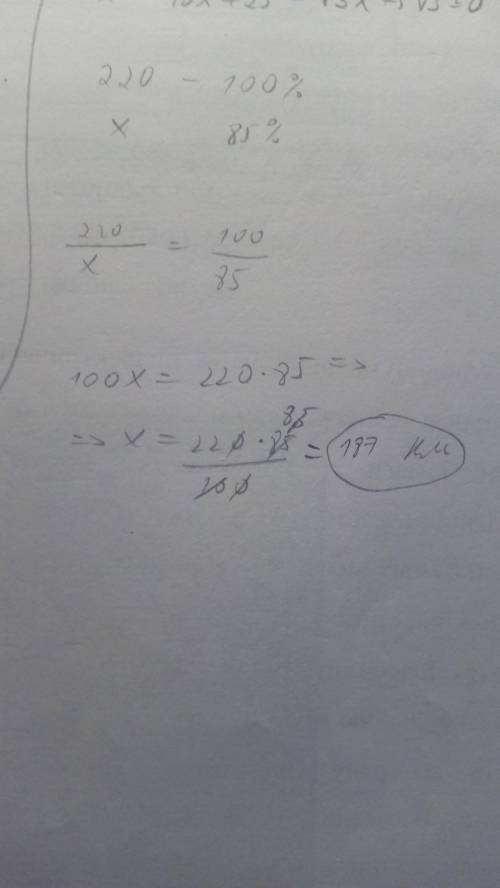 10x + 25 - √3x - 5√3 = 0
220 - 100%
x 85%
220/x = 100/85
100x = 220 · 85 =>
=> x = 220 · 85/100 = 187 км